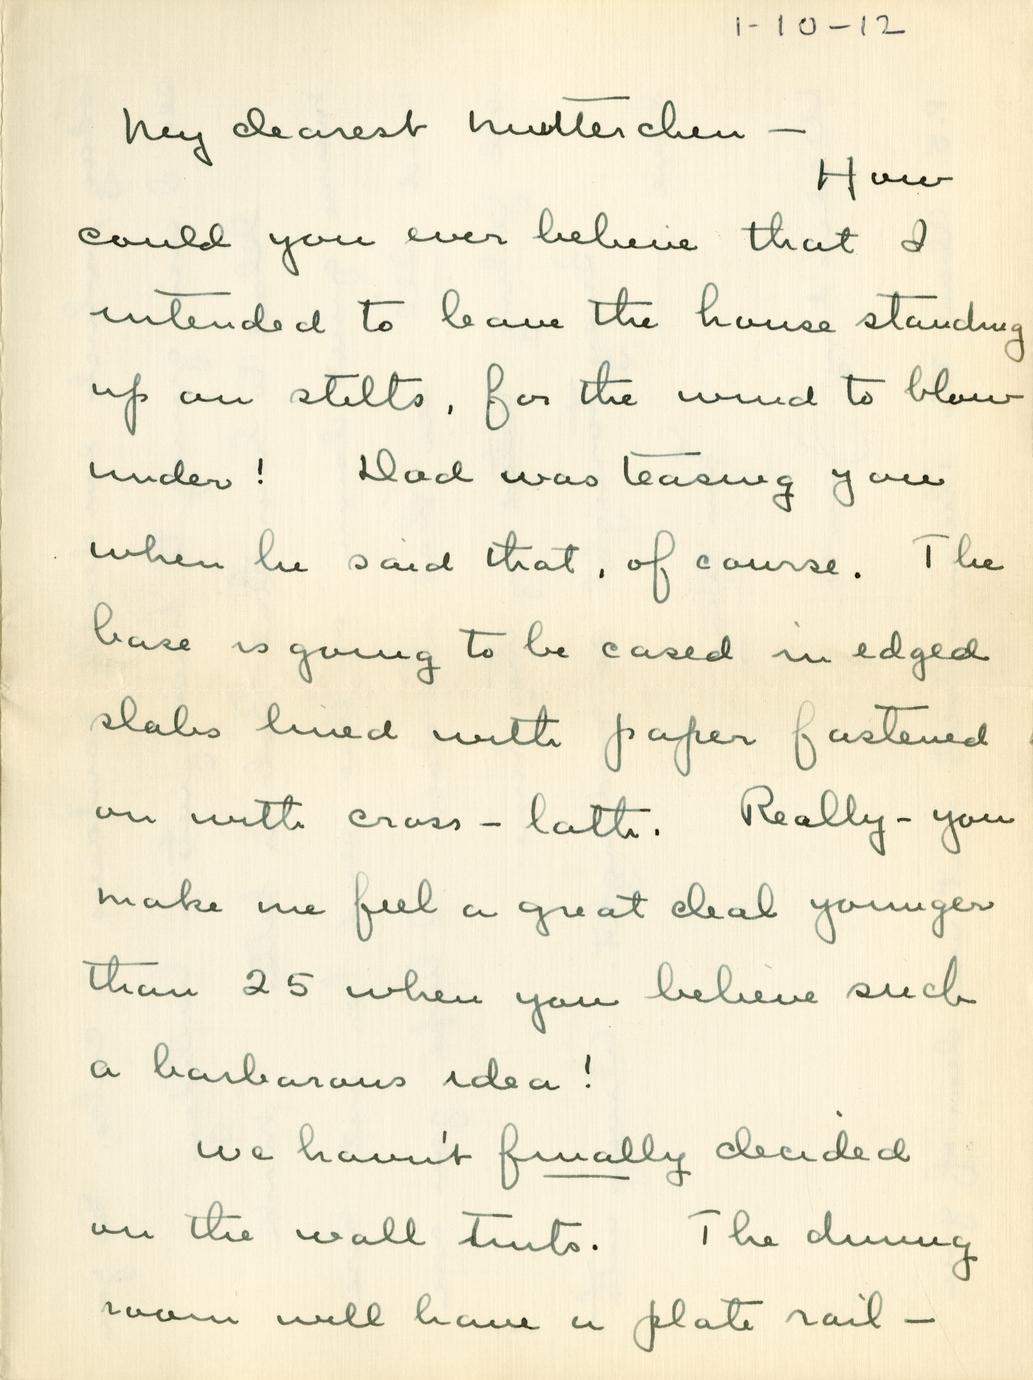 1-10-12
My dearest Mutterchen —
How
could you ever believe that I
intended to leave the house standing
up on stilts, for the wind to blow
under! Dad was teasing you
when he said that, of course. The
base is going to be cased in edged
slabs lined with paper fastened
on with cross-lath. Really - you
make me feel a great deal younger
than 25 when you believe such
a barbarous idea!
We haven't finally decided
on the wall tints. The dining
room will have a plate rail —